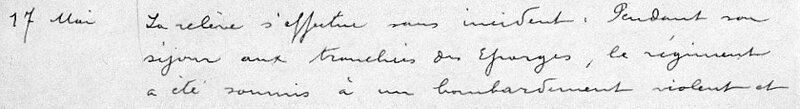 17 Mai La relève s'effectue sans incident. Pendant son
séjour aux tranchées des Eparges, le régiment
a été soumis à un bombardement violent et